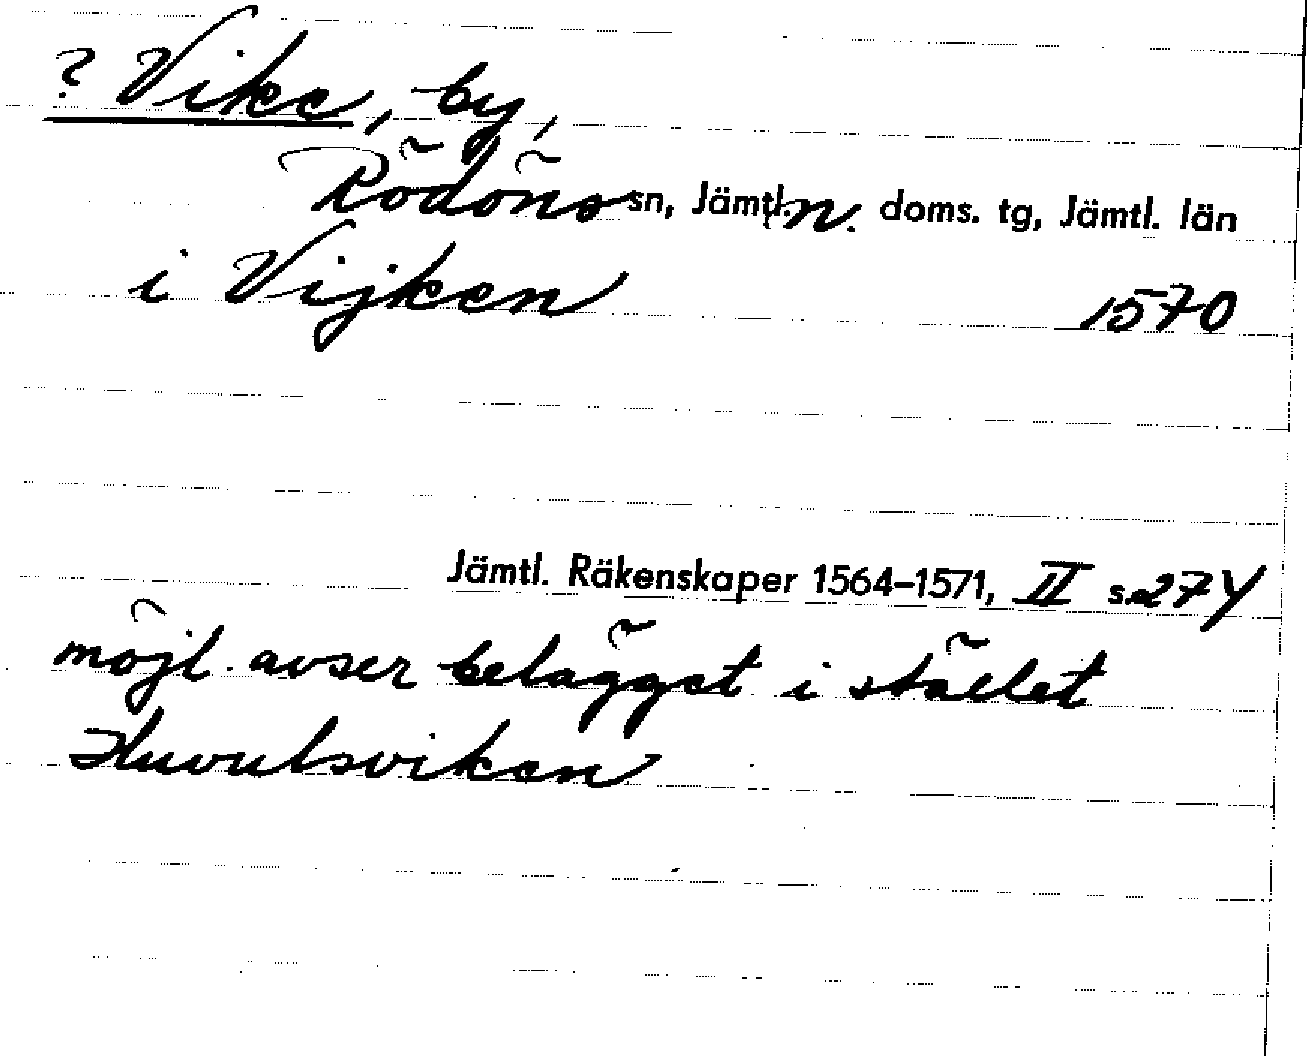 ? Vike, by,
Rödöns sn, Jämtl. n. doms. tg, Jämtl. län
i Vijken 1570
Jämtl. Räkenskaper 1564–1571, II s. 274
möjl. avser belägget i stället
Huvulsviken